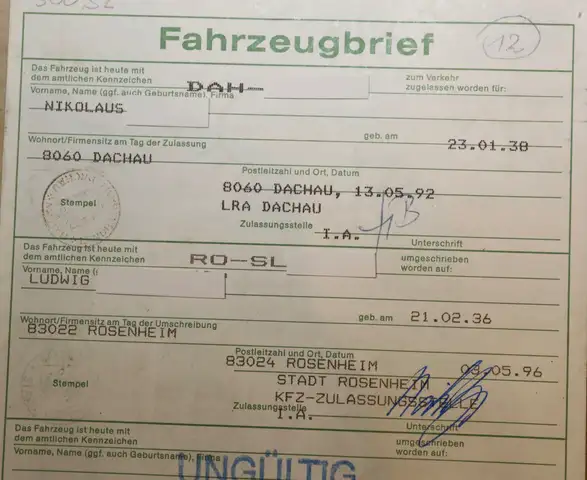 Fahrzeugbrief
12
Das Fahrzeug ist heute mit
dem amtlichen Kennzeichen DAH- zum Verkehr
zugelassen worden für:
Vorname, Name (ggf. auch Geburtsname), Firma
NIKOLAUS
Wohnort/Firmensitz am Tag der Zulassung geb. am 23.01.38
8060 DACHAU
Postleitzahl und Ort, Datum
8060 DACHAU, 13.05.92
Stempel LRA DACHAU
Zulassungsstelle I.A.
Unterschrift
Das Fahrzeug ist heute mit
dem amtlichen Kennzeichen RO-SL umgeschrieben
worden auf:
Vorname, Name
LUDWIG
Wohnort/Firmensitz am Tag der Umschreibung geb. am 21.02.36
83022 ROSENHEIM
Postleitzahl und Ort, Datum
83024 ROSENHEIM 03.05.96
Stempel STADT ROSENHEIM
KFZ-ZULASSUNGSSTELLE
Zulassungsstelle I.A.
Unterschrift
Das Fahrzeug ist heute mit
dem amtlichen Kennzeichen umgeschrieben
worden auf:
Vorname, Name (ggf. auch Geburtsname), Firma
UNGÜLTIG